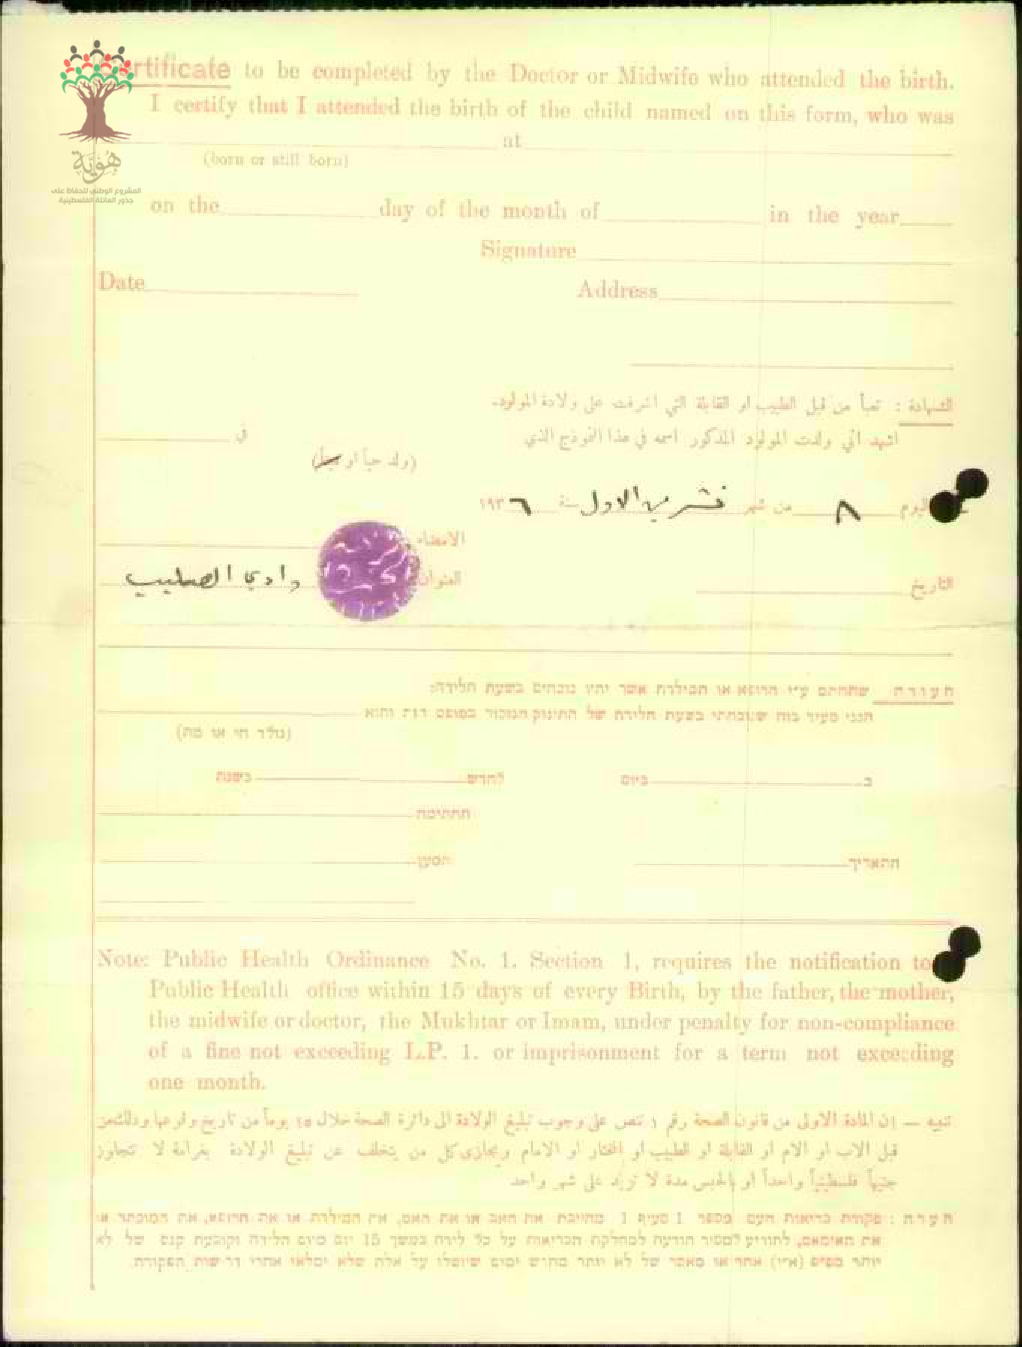 Certificate to be completed by the Doctor or Midwife who attended the birth.
I certify that I attended the birth of the child named on this form, who was
at
(born or still born)
هُويّة
المشروع الوطني للحفاظ على
جذور العائلة الفلسطينية
on the day of the month of in the year
Signature
Date Address
الشهادة : تعبأ من قبل الطبيب او القابلة التي اشرفت على ولادة المولود.
اشهد اني ولدت المولود المذكور اسمه في هذا النموذج الذي في
(ولد حياً او ميتاً)
اليوم ٨ من شهر تشرين الاول سنة ١٩٣٦
الامضاء
التاريخ العنوان وادي الصليب
תעודה שתחתם ע״י הרופא או המילדת אשר יהיו נוכחים בשעת הלידה:
הנני מעיד בזה שנוכחתי בשעת הלידה של התינוק הנזכר בטופס הזה והוא
(נולד חי או מת)
ב ביום לחדש בשנת
החתימה
התאריך המען
Note: Public Health Ordinance No. 1. Section 1, requires the notification to
Public Health office within 15 days of every Birth, by the father, the mother,
the midwife or doctor, the Mukhtar or Imam, under penalty for non-compliance
of a fine not exceeding L.P. 1. or imprisonment for a term not exceeding
one month.
تنبيه — إن المادة الاولى من قانون الصحة رقم ١ تنص على وجوب تبليغ الولادة الى دائرة الصحة خلال ١٥ يوماً من تاريخ وقوعها وذلك من
قبل الاب او الام او القابلة او الطبيب او المختار او الامام ويجازى كل من يتخلف عن تبليغ الولادة بغرامة لا تتجاوز
جنيهاً فلسطينياً واحداً او بالحبس مدة لا تزيد على شهر واحد
הערה : פקודת בריאות העם מספר 1 סעיף 1 מחייבת את האב או את האם, את המילדת או את הרופא, את המוכתר או
את האימאם, להודיע למחלקת הבריאות על כל לידה במשך 15 יום מיום הלידה וקובעת קנס של לא
יותר מפ״פ (א״י) אחד או מאסר של לא יותר מחדש ימים שיוטלו על אלה שלא ימלאו אחרי דרישות הפקודה.